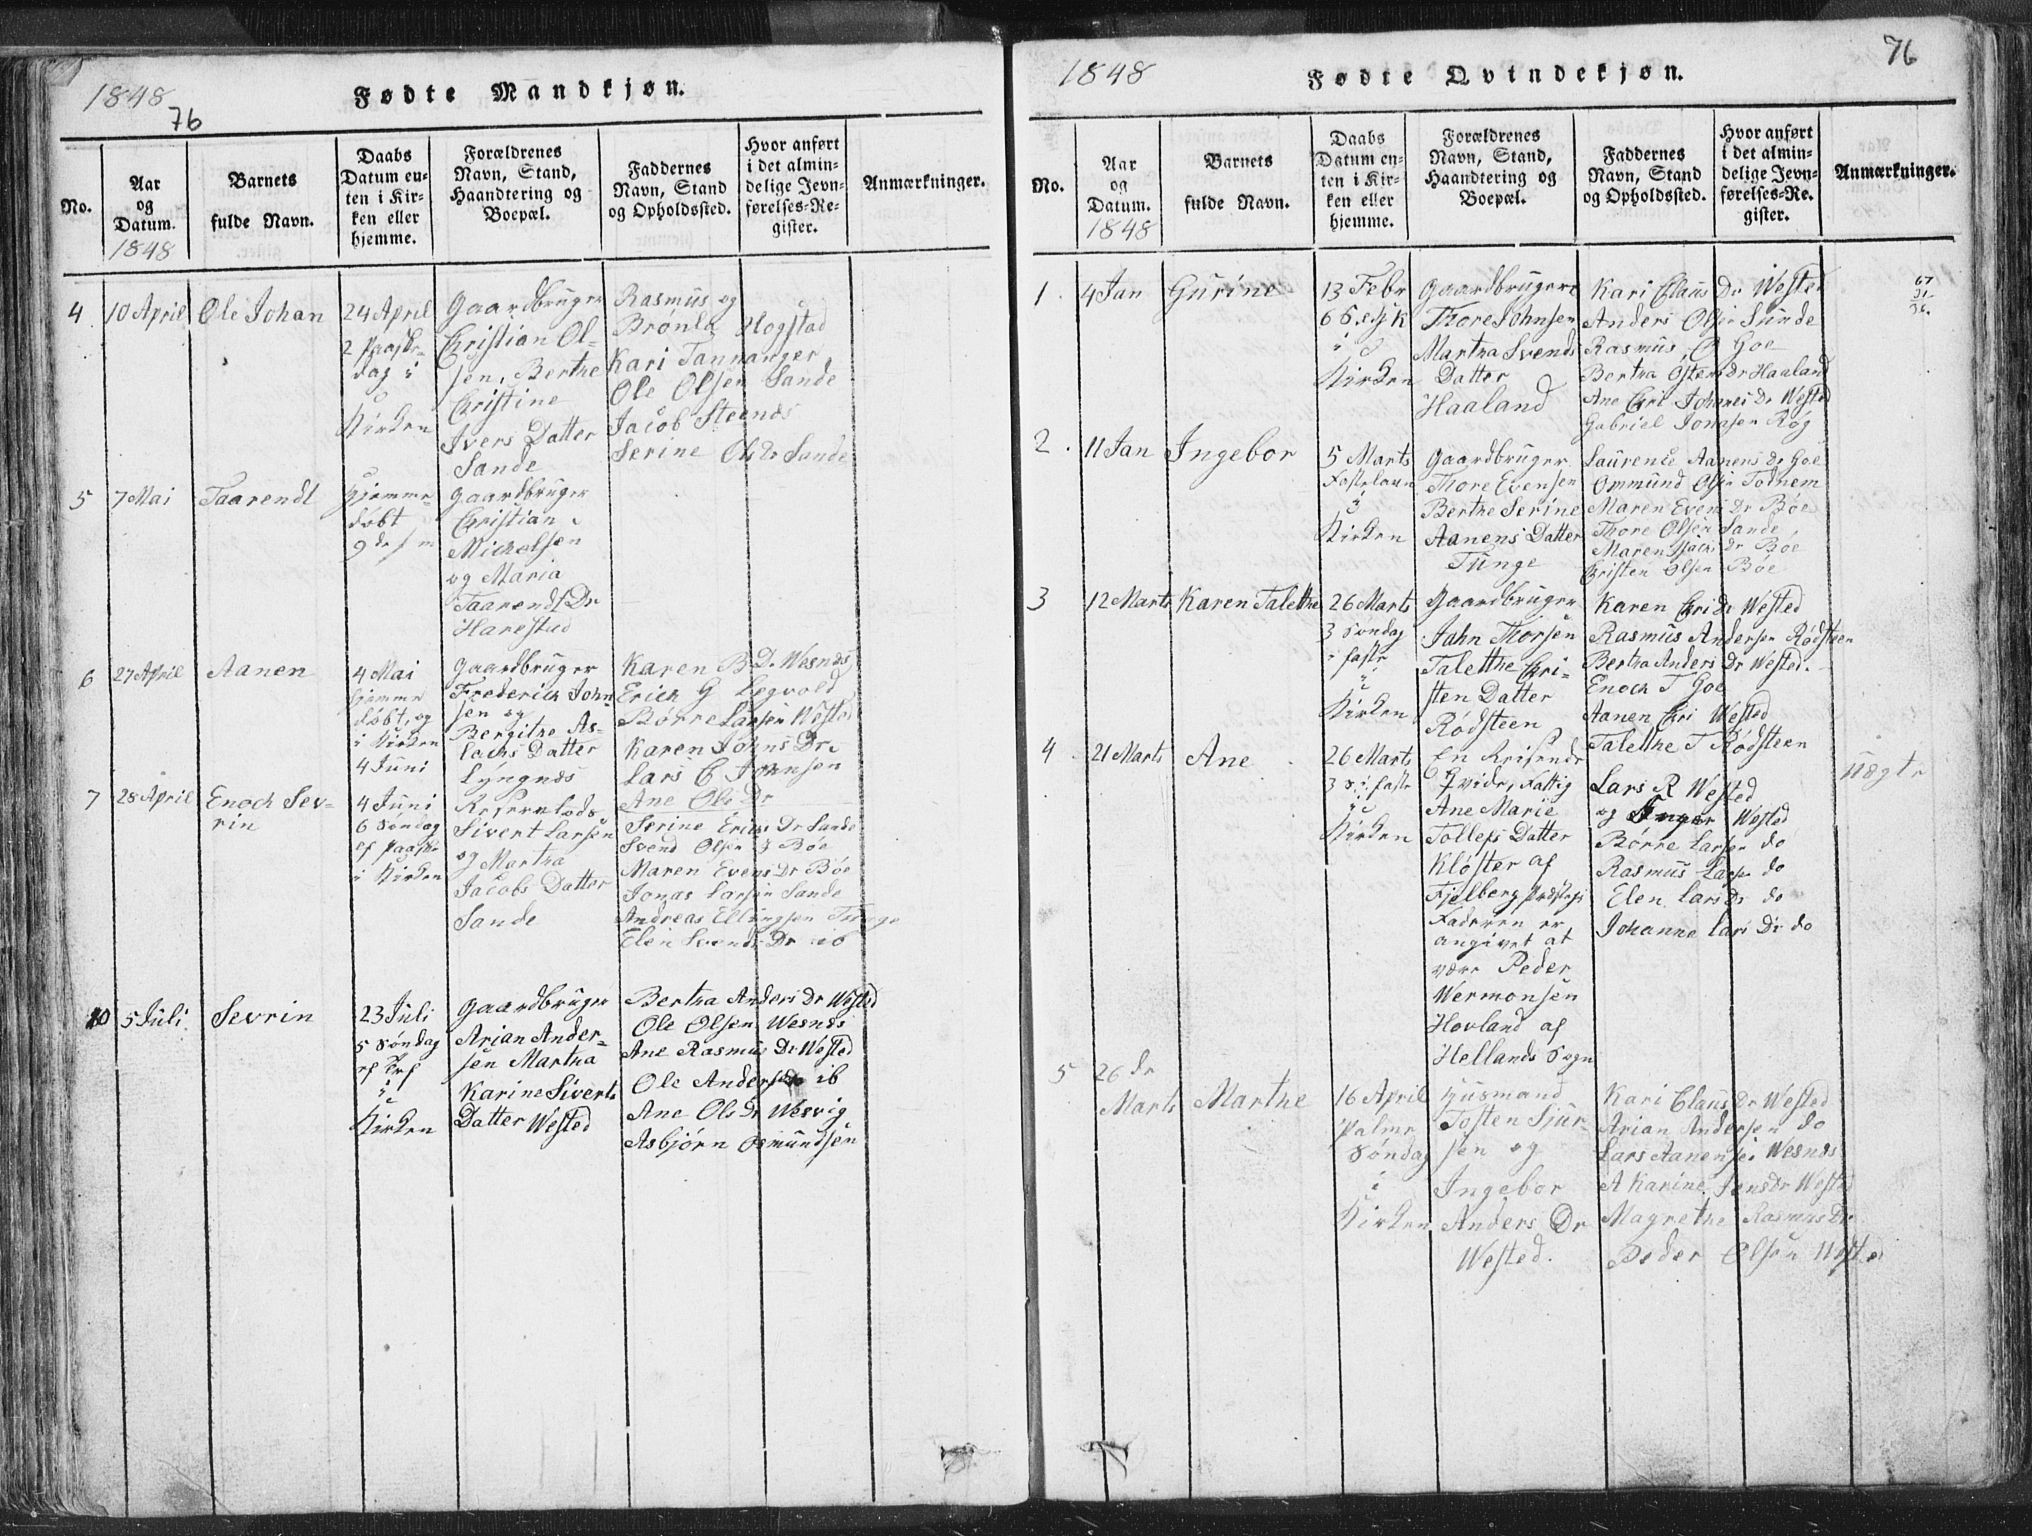 1848
76
Fødte Mandkjøn.
No.
Aar
og
Datum.
1848
Barnets
fulde Navn.
Daabs
Datum en-
ten i Kir-
ken eller
hjemme.
Forældrenes
Navn, Stand,
Haandtering og
Boepæl.
Faddernes
Navn, Stand
og Opholdssted.
Hvor anført
i det almin-
delige Jevn-
førelses-Re-
gister.
Anmærkninger.
4
10 April
Ole Johan
24 April
2
dag i
Kirken
Gaardbruger
Christian Ol-
sen, Berthe
Christine
Ivers Datter
Sande
Rasmus og
Brønla Hogstad
Kari Tannanger
Ole Olsen Sande
Jacob Steends
Serine Ols Dr Sande
5
7 Mai
Taarendt
Hjemme-
døbt
Gaardbruger
Christian
Michelsen
og Maria
Taarendt Dr
Harestad
6
27 April
Aanen
4 Mai
hjemme
døbt, og
i Kirken
4 Juni
Gaardbruger
Frederich John-
sen og
Bergithe As-
lachs Datter
Lyngnæs
Karen B D. Wesnæs
Erich G Legvold
Børre Larsen Wested
Karen Johns Dr.
Lars C Johnsen
Ane Ols Dr
7
28 April
Enoch Sev-
rin
4 Juni
6 Søndag
ef Paaske
i Kirken
Sivert Larsen
og Martha
Jacobs Datter
Sande
Serine Erics Dr Sande
Svend Olsen Bøe
Maren Evens Dr Bøe
Jonas Larsen Sande
Andreas Ellingsen Tunge
Elen Svends Dr ib
10
5 Juli
Sevrin
23 Juli
5 Søndag
ef Tref
i
Kirken
Gaardbruger
Arian Ander-
sen Martha
Karine Siverts
Datter Wested
Bertha Anders Dr Wested
Ole Olsen Wesnæs
Ane Rasmus Dr Wested
Ole Andersen ib
Ane Ols Dr Wesvig
Asbjørn Osmundsen
1848
76
Fødte Qvindekjøn.
No.
Aar
og
Datum.
1848
Barnets
fulde Navn.
Daabs
Datum en-
ten i Kir-
ken eller
hjemme.
Forældrenes
Navn, Stand,
Haandtering og
Boepæl.
Faddernes
Navn, Stand
og Opholdssted.
Hvor anført
i det almin-
delige Jevn-
førelses-Re-
gister.
Anmærkninger.
1
4 Jan
Gurine
13 Febr
6 S. e. H. 3 K
i
Kirken
Gaardbruger
Thore Johnsen
Martha Svends
Datter
Haaland
Kari Claus Dr Wested
Anders Olsen Sunde
Rasmus O Goe
Bertha Ostens Dr Haaland
Ane Chri Johanes Dr Wested
Gabriel Jonasen Røg
2
11 Jan
Ingebor
5 Marts
Fastelavn
i
Kirken
Gaardbruger
Thore Evensen
Berthe Serine
Aanens Datter
Tunge
Laurence Aanens Dr Goe
Ommund Olsen Todnem
Maren Evens Dr Bøe
Thore Olsen Sande
Maren Isachs Dr Bøe
Christen Olsen Bøe
3
12 Marts
Karen Talethe
26 Marts
3 Søndag
i faste
i
Kirken
Gaardbruger
Jahn Thorsen
Talethe Chri-
sten Datter
Rødsteen
Karen Chri Dr Wested
Rasmus Andersen Rødsteen
Bertha Anders Dr Wested.
Enoch T Goe
Aanen Chri Wested
Talethe T Rødsteen
4
21 Marts
Ane
26 Marts
3 S. i faste
i
Kirken
En Reisende
Qvide, Fattig
Ane Marie
Tollefs Datter
Kloster af
Fjelberg Præstegj
Faderen er
angivet at
være Peder
Wermonsen
Hovland af
Hellands Sogn
Lars R Wested
og Inger Wested
Børre Larsen do
Rasmus Larsen do
Elen Lars Dr do
Johanne Lars Dr do
uægte
5
26 de
Marts
Marthe
16 April
Palme
Søndag
i
Kirken
Husmand
Tosten Sjur-
sen og
Ingebor
Anders Dr
Wested.
Kari Claus Dr Wested
Arian Andersen do
Lars Aanensen Wesnæs
A Karine Jens Dr Wested
Magrethe Rasmus Dr
Peder Olsen Wested